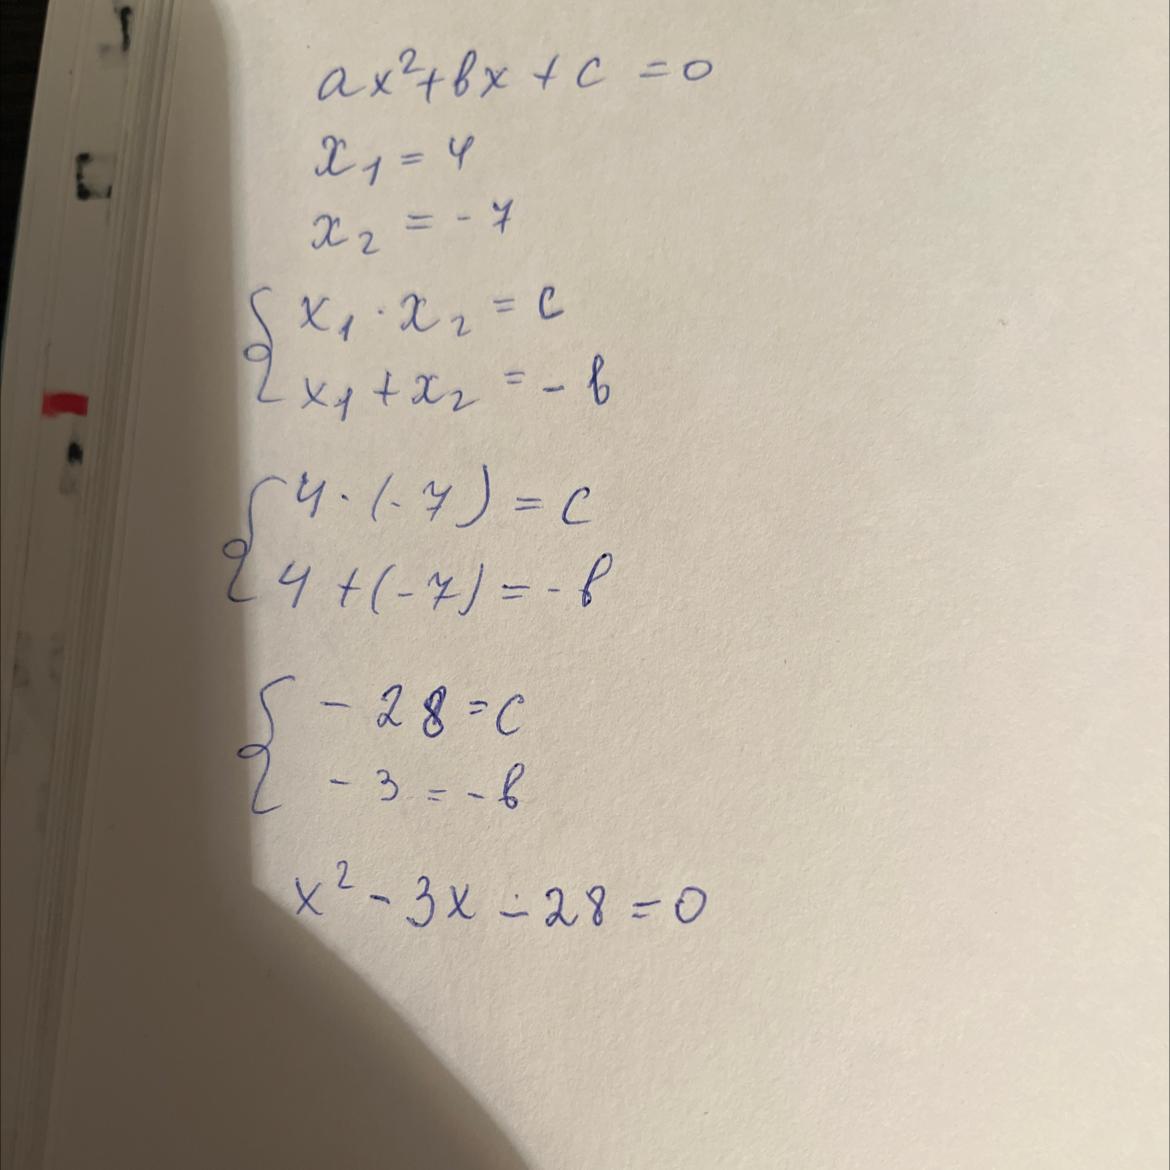 ax²+вx+c=0
x₁=4
x₂=-7
{x₁·x₂=c
x₁+x₂=-в
{4·(-7)=c
4+(-7)=-в
{-28=c
-3=-в
x²-3x-28=0